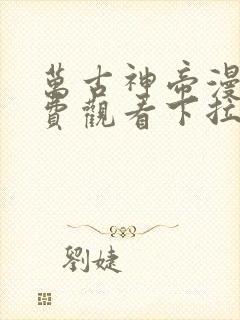 萬古神帝漫
費觀看下拉
劉婕